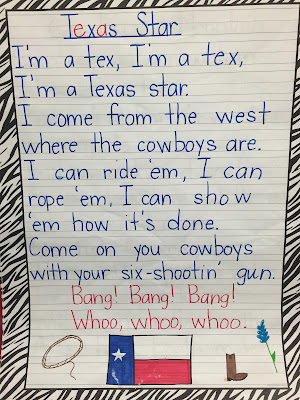 Texas Star
I'm a tex, I'm a tex,
I'm a Texas star.
I come from the west
where the cowboys are.
I can ride 'em, I can
rope 'em, I can show
'em how it's done.
Come on you cowboys
with your six-shootin' gun.
Bang! Bang! Bang!
Whoo, whoo, whoo.